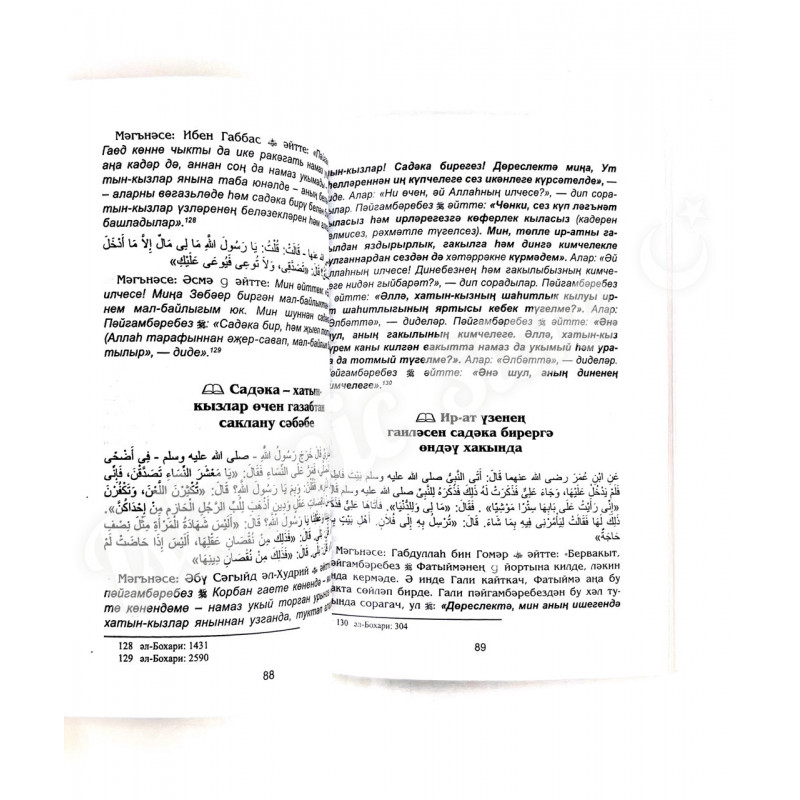 Мәгънәсе: Ибен Габбас ﷺ әйтте: «Пәйгам
Гаед көнне чыкты да ике ракәгать намаз
аңа кадәр дә, аннан соң да намаз укымады.
тын-кызлар янына таба юнәлде – аның бе
– аларны вәгазьләде һәм садәка бирү белән
тын-кызлар үзләренең беләзекләрен һәм
башладылар».128
الله عنها - قَالَتْ: قُلْتُ: يَا رَسُولَ اللَّهِ مَا لِي مَالٌ إِلاَّ مَا أَدْخَلَ
قَالَ: «تَصَدَّقِي، وَلاَ تُوعِي فَيُوعَى عَلَيْكِ»
Мәгънәсе: Әсмә әйтте: Мин әйттем:
илчесе! Миңа Зөбәер биргән мал-байлыктан
нем мал-байлыгым юк. Мин шуннан
Пәйгамбәребез ﷺ: «Садәка бир, һәм җыеп
(Аллаһ тарафыннан әҗер-савап, мал-байлык
тылыр», — диде».129
Садәка – хатын-
кызлар өчен газабтан
саклану сәбәбе
قَالَ خَرَجَ رَسُولُ اللَّهِ - صلى الله عليه وسلم - فِي أَضْحًى
فَمَرَّ عَلَى النِّسَاءِ فَقَالَ: «يَا مَعْشَرَ النِّسَاءِ تَصَدَّقْنَ، فَإِنِّي
فَقُلْنَ: وَبِمَ يَا رَسُولَ اللَّهِ؟ قَالَ: «تُكْثِرْنَ اللَّعْنَ، وَتَكْفُرْنَ
عَقْلٍ وَدِينٍ أَذْهَبَ لِلُبِّ الرَّجُلِ الْحَازِمِ مِنْ إِحْدَاكُنَّ».
وَعَقْلِنَا يَا رَسُولَ اللَّهِ؟ قَالَ: «أَلَيْسَ شَهَادَةُ الْمَرْأَةِ مِثْلَ نِصْفِ
بَلَى. قَالَ: «فَذَلِكَ مِنْ نُقْصَانِ عَقْلِهَا، أَلَيْسَ إِذَا حَاضَتْ لَمْ
بَلَى. قَالَ: «فَذَلِكَ مِنْ نُقْصَانِ دِينِهَا»
Мәгънәсе: Әбү Сәгыйд әл-Худрий әйтте:
пәйгамбәребез ﷺ Корбан гаете көнендә –
те көнендәме – намаз укый торган урынга
хатын-кызлар яныннан узганда, туктап
128 әл-Бохари: 1431
129 әл-Бохари: 2590
88
тын-кызлар! Садәка бирегез! Дөреслектә миңа, Ут
һелләреннән иң күпчелеге сез икәнлеге күрсәтелде», —
Алар: «Ни өчен, әй Аллаһның илчесе?», — дип сора-
дылар. Пәйгамбәребез ﷺ әйтте: «Чөнки, сез күп ләгънәт
кыласыз һәм ирләрегезгә көферлек кыласыз (кадерен
белмисез, рәхмәтле түгелсез). Мин, төпле ир-атны га-
кылдан яздырырлык, гакылга һәм дингә кимчелекле
булганнардан сездән дә хәтәррәкне күрмәдем». Алар: «Әй
Аллаһның илчесе! Динебезнең һәм гакылыбызның кимче-
леге нидән гыйбарәт?», — дип сорадылар. Пәйгамбәребез
әйтте: «Әллә, хатын-кызның шаһитлык кылуы ир-
ат шаһитлыгының яртысы кебек түгелме?». Алар:
«Әлбәттә», — диделәр. Пәйгамбәребез ﷺ әйтте: «Әнә
шул, аның гакылының кимчелеге. Әллә, хатын-кыз
күрем каны килгән вакытта намаз да укымый һәм ура-
за да тотмый түгелме?». Алар: «Әлбәттә», — диделәр.
Пәйгамбәребез ﷺ әйтте: «Әнә шул, аның диненең
кимчелеге».130
Ир-ат үзенең
гаиләсен садәка бирергә
өндәү хакында
عَنِ ابْنِ عُمَرَ رضى الله عنهما قَالَ: أَتَى النَّبِيُّ صلى الله عليه وسلم بَيْتَ فَاطِمَةَ
فَلَمْ يَدْخُلْ عَلَيْهَا، وَجَاءَ عَلِيٌّ فَذَكَرَتْ لَهُ ذَلِكَ فَذَكَرَهُ لِلنَّبِيِّ صلى الله عليه وسلم
قَالَ: «إِنِّي رَأَيْتُ عَلَى بَابِهَا سِتْرًا مَوْشِيًّا» . فَقَالَ: «مَا لِي وَلِلدُّنْيَا». فَأَتَاهَا عَلِيٌّ فَذَكَرَ
ذَلِكَ لَهَا فَقَالَتْ لِيَأْمُرْنِي فِيهِ بِمَا شَاءَ. قَالَ: «تُرْسِلُ بِهِ إِلَى فُلاَنٍ. أَهْلِ بَيْتٍ بِهِمْ
Мәгънәсе: Габдуллаһ бин Гомәр әйтте: «Бервакыт,
пәйгамбәребез ﷺ Фатыймәнең йортына килде, ләкин
янында кермәде. Ә инде Гали кайткач, Фатыймә аңа бу
хакта сөйләп бирде. Гали пәйгамбәребездән бу хәл ту-
рында сорагач, ул ﷺ: «Дөреслектә, мин аның ишегендә
130 әл-Бохари: 304
89